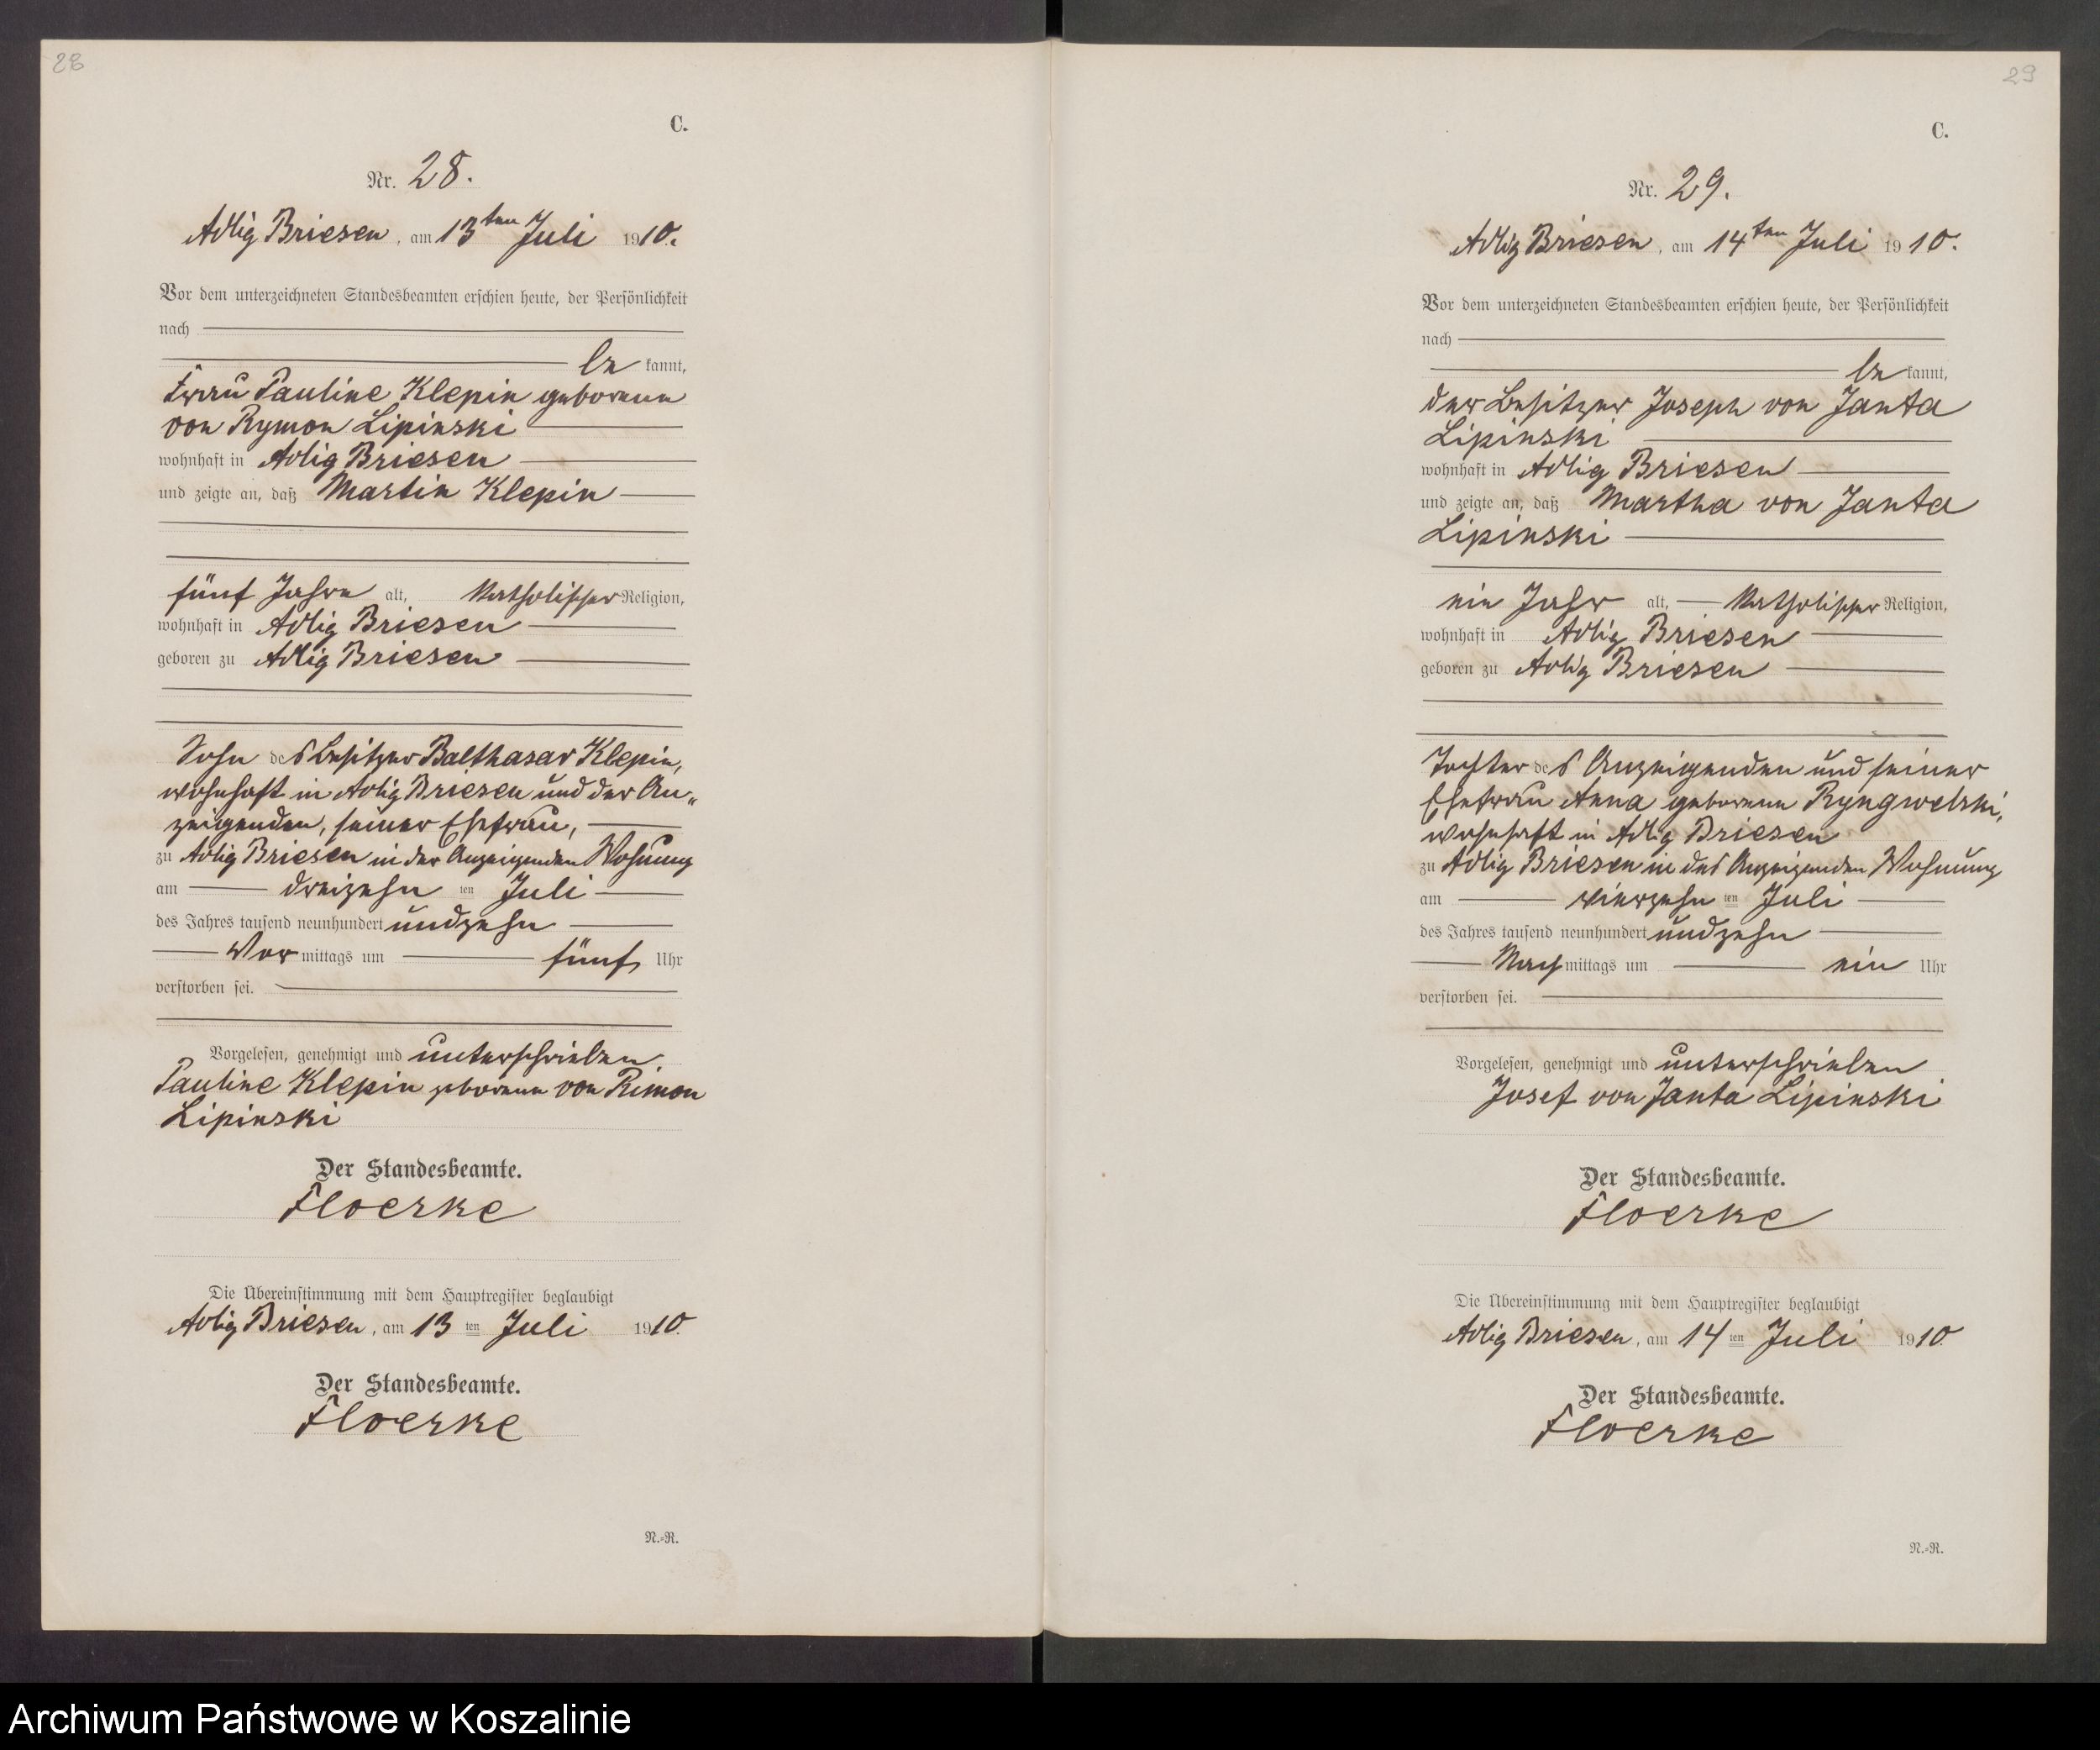 28
C.
Nr. 28.
Adlig Briesen, am 13ten Juli 1910.
Vor dem unterzeichneten Standesbeamten erschien heute, der Persönlichkeit
nach
be kannt,
Frau Pauline Klepin geborene
von Rymon Lipinski
wohnhaft in Adlig Briesen
und zeigte an, daß Martin Klepin
fünf Jahre alt, katholischer Religion,
wohnhaft in Adlig Briesen
geboren zu Adlig Briesen
Sohn des Besitzer Balthasar Klepin,
wohnhaft in Adlig Briesen und der An„
zeigenden, seiner Ehefrau,
zu Adlig Briesen in der Anzeigenden Wohnung
am dreizehn ten Juli
des Jahres tausend neunhundert undzehn
Vor mittags um fünf Uhr
verstorben sei.
Vorgelesen, genehmigt und unterschrieben
Pauline Klepin geborene von Rimon
Lipinski
Der Standesbeamte.
Floerke
Die Übereinstimmung mit dem Hauptregister beglaubigt
Adlig Briesen, am 13 ten Juli 1910.
Der Standesbeamte.
Floerke
N.=R.
29
C.
Nr. 29.
Adlig Briesen, am 14ten Juli 1910.
Vor dem unterzeichneten Standesbeamten erschien heute, der Persönlichkeit
nach
be kannt,
der Besitzer Joseph von Janta
Lipinski
wohnhaft in Adlig Briesen
und zeigte an, daß Martha von Janta
Lipinski
ein Jahr alt, katholischer Religion,
wohnhaft in Adlig Briesen
geboren zu Adlig Briesen
Tochter des Anzeigenden und seiner
Ehefrau Anna geborene Ryngwelski,
wohnhaft in Adlig Briesen
zu Adlig Briesen in des Anzeigenden Wohnung
am vierzehn ten Juli
des Jahres tausend neunhundert undzehn
Nach mittags um ein Uhr
verstorben sei.
Vorgelesen, genehmigt und unterschrieben
Josef von Janta Lipinski
Der Standesbeamte.
Floerke
Die Übereinstimmung mit dem Hauptregister beglaubigt
Adlig Briesen, am 14 ten Juli 1910.
Der Standesbeamte.
Floerke
N.=R.
Archiwum Państwowe w Koszalinie